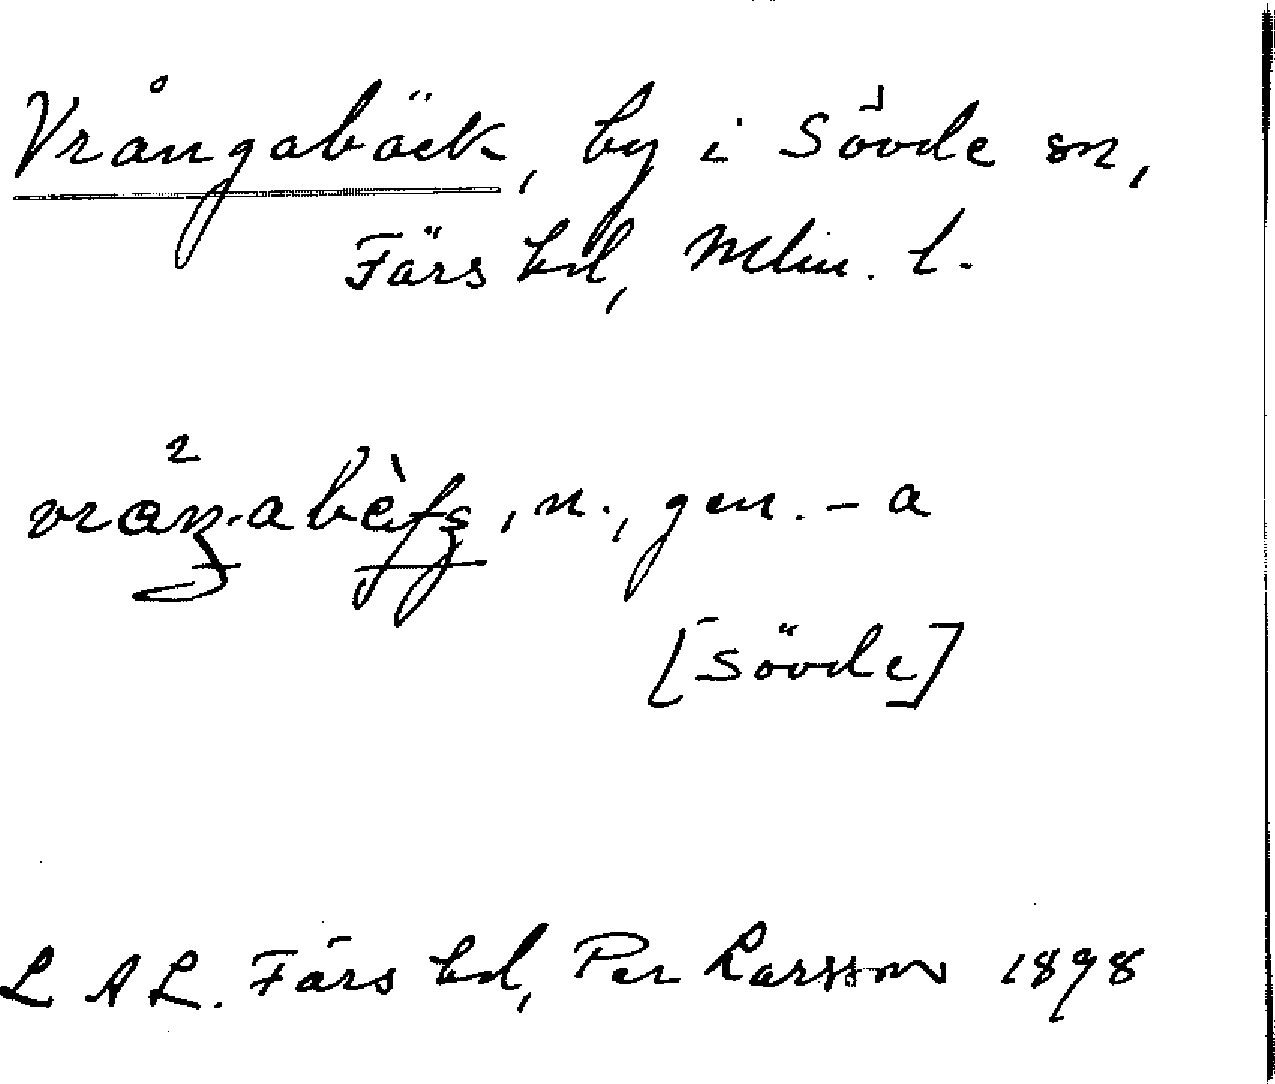 Vrångabäck, by i Sövde sn,
Färs hd, Mlm. l.
, n., gen. -a
[Sövde]
L A L. Färs hd, Per Larsson 1898